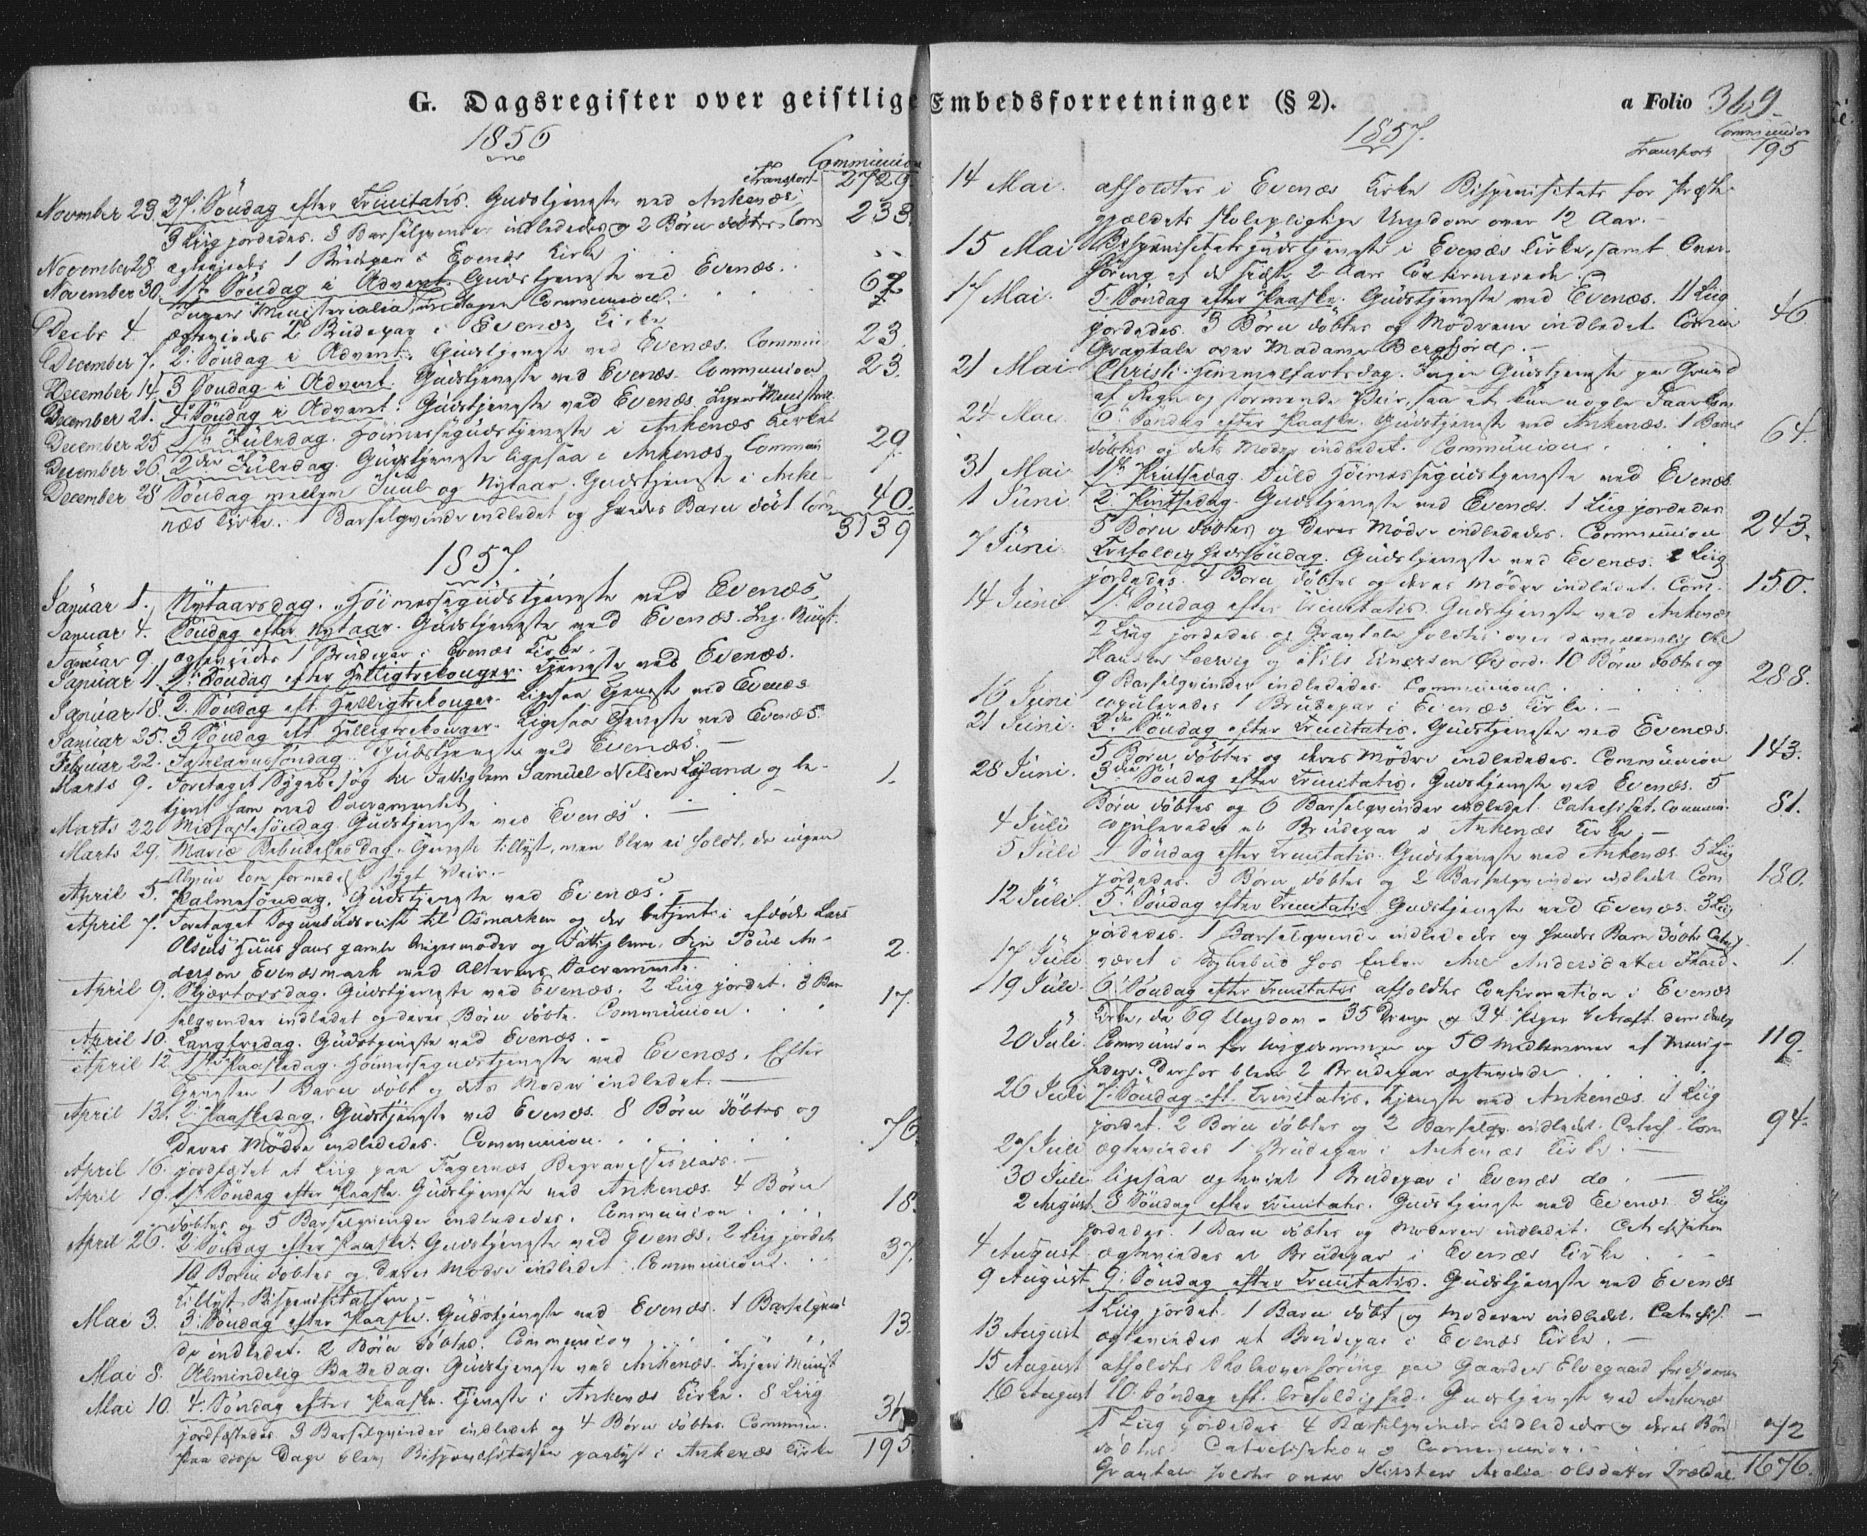 G. Dagsregister over geistlige Embedsforretninger (§ 2).
a Folio 369.
1856
Communion
Transport 2729.
November 23. 27. Söndag efter Trinitatis. Gudstjeneste ved Ankenæs 233.
3 Liig jordedes. 3 Barselqvinder indledede og 2 Börn döbtes. Com
November 28. ægteviedes 1 Brudepar i Evenæs Kirke
November 30. 1ste Söndag i Advent. Gudstjeneste ved Evenæs. 67
Ingen Ministerialia, undtagen Communion.
Decbr 4. ægteviedes 2 Brudepar i Evenæs Kirke
December 7. 2. Söndag i Advent. Gudstjeneste ved Evenæs. Commun 23.
December 14. 3 Söndag i Advent. Gudstjeneste ved Evenæs. Communion 23.
December 21. 4. Söndag i Advent. Gudstjeneste ved Evenæs. Ingen Ministerial
December 25. 1ste Juledag. Höimessegudstjeneste i Ankenæs Kirke
December 26. 2den Juledag. Gudstjeneste ligesaa i Ankenæs. Commun 29.
December 28 Söndag mellem Juul og Nytaar. Gudstjeneste i Anke-
næs Kirke. 1 Barselqvinde indledet og hendes Barn döbt Com 40.
3139
1857.
Januar 1. Nytaarsdag. Höimessegudstjeneste ved Evenæs.
Januar 4. Söndag efter Nytaar. Gudstjeneste ved Evenæs. Ing. Minist.
Januar 9. ægteviedes 1 Brudepar i Evenæs Kirke.
Januar 11. 1ste Söndag efter Helligtrekonger. Tjeneste ved Evenæs.
Januar 18. 2. Söndag eft. Helligtrekonger. Ligesaa Tjeneste ved Evenæs
Januar 25. 3 Söndag eft Helligtrekonger. Ligesaa Tjeneste ved Evenæs.
Februar 22. Fastelavnssöndag. Gudstjeneste ved Evenæs. —
Marts 9. Foretaget Sygebesög til Fattiglem Samuel Nilsen Liland og be- 1.
tjent ham med Sacramentet
Marts 22 Midfastesöndag. Gudstjeneste ved Evenæs. —
Marts 29. Mariæ Bebudelses Dag. Tjeneste tillyst, men blev ei holdt, da ingen
Almue kom formedelst stygt Veir. —
April 5. Palmesöndag. Gudstjeneste ved Evenæs. —
April 7. Foretaget Sognebudsreise til Osmarken og der betjent i afdöde Lars
Olsens Huus hans gamle Svigermoder og Fattiglem. Poul An- 2.
dersen Evenæsmark med Alterens Sacramente.
April 9. Skjærtorsdag. Gudstjeneste ved Evenæs. 2 Liig jordet. 3 Bar
selqvinder indledet og deres Börn döbte. Communion. 17.
April 10. Langfredag. Gudstjeneste ved Evenæs. -
April 12. 1ste Paaskedag. Höimessegudstjeneste ved Evenæs. Efter
Tjenesten 1 Barn döbt og dets Moder indledet. —
April 13. 2. Paaskedag. Gudstjeneste ved Evenæs. 8 Börn döbtes og
deres Mödre indledede. Communion. 76.
April 16. jordfæstet et Liig paa Fagernæs Begravelsesplads. —
April 19. 1ste Söndag efter Paaske. Gudstjeneste ved Ankenæs. 4 Börn
döbtes og 5 Barselqvinder indledede. Communion 18.
April 26. 2 Söndag efter Paaske. Gudstjeneste ved Evenæs. 2 Liig jordet
10 Börn döbtes og deres Mödre indledet. Communion. 37.
Tillyst Bispevisitatsen.
Mai 3. 3. Söndag efter Paaske. Gudstjeneste ved Evenæs. 1 Barselqvin-
de indledet. 2 Börn döbtes. Communion 13.
Mai 8. Almindelig Bededag. Gudstjeneste ved Ankenæs. Ingen Minist
Mai 10. 4. Söndag efter Paaske. Tjeneste i Ankenæs Kirke. 8 Liig
jordfæstedes. 3 Barselqvinder indledet og 4 Börn döbtes. Commun.
Paa disse Dage blev Bispevisitatsen paalyst i Ankenæs Kirke 195.
1857.
Communion
Transport 195
14 Mai. afholdtes i Evenæs Kirke Bispevisitats for Præste-
gjældets skolepligtige Ungdom over 12 Aar. —
15 Mai Bispevisitatsgudstjeneste i Evenæs Kirke, samt Over-
höring af de sidste 2 Aars Confirmerede.
17 Mai. 5. Söndag efter Paaske. Gudstjeneste ved Evenæs. 11 Liig
jordedes. 3 Börn döbtes og Mödrene indledet. Comm 46.
Gravtale over Madame Bergfjord. —
21 Mai Christi Himmelfartsdag. Ingen Gudstjeneste paa Grund
af Regn og stormende Veir, saa at kun nogle Faa kom
24 Mai 6. Söndag efter Paaske. Gudstjeneste ved Ankenæs. 1 Barn
döbtes og dets Moder indledet. Communion. 64.
31 Mai 1ste Pintsedag. Holdt Höimessegudstjeneste ved Evenæs
1 Juni 2. Pintsedag. Gudstjeneste ved Evenæs. 1 Liig jordedes
5 Börn döbtes og deres Mödre indledede. Communion 243.
7 Juni. Trefoldighedssöndag. Gudstjeneste ved Evenæs. 2 Liig
jordedes. 4 Börn döbtes og deres Mödre indledet. Com. 150.
14 Juni 1ste Söndag efter Trinitatis. Gudstjeneste ved Ankenæs
2 Liig jordedes og Gravtale holdtes over dem, nemlig Ole
Hansen Leervig og Nils Einersen Öijord. 10 Börn döbtes og
9 Barselqvinder indledede. Communion. 288.
16 Juni copuleredes 1 Brudepar i Evenæs Kirke. —
21 Juni. 2den Söndag efter Trinitatis. Gudstjeneste ved Evenæs.
5 Börn döbtes og deres Mödre indledede. Communion 143.
28 Juni. 3die Söndag efter Trinitatis. Gudstjeneste ved Evenæs. 5
Börn döbtes og 6 Barselqvinder indledet. Catechiset. Commun. 81.
4 Juli copuleredes et Brudepar i Ankenæs Kirke. —
5 Juli 4 Söndag efter Trinitatis. Gudstjeneste ved Ankenæs. 5 Liig
jordedes. 3 Börn döbtes og 2 Barselqvinder indledet Com 180.
12 Juli. 5. Söndag efter Trinitatis Gudstjeneste ved Evenæs. 3 Liig
jordedes. 1 Barselqvinde indledede og hendes Barn döbtes Catech
17 Juli været i Sognebud hos Enken Ane Andersdatter 1
19 Juli. 6. Söndag efter Trinitatis afholdtes Confirmation i Evenæs
Kirke, da 69 Ungdom - 35 Drenge og 34 Piger bekræft. deres Daab
20 Juli. Communion for Ungdommen og 50 Medlemmer af Menig- 119.
heden. Derhos blev 2 Brudepar ægteviede
26 Juli 7. Söndag eft. Trinitatis. Tjeneste ved Ankenæs. 1 Liig
jordet. 2 Börn döbtes og 2 Barselqv. indledet. Catech. Com 94.
27 Juli ægteviedes 1 Brudepar i Ankenæs Kirke. —
30 Juli ligesaa ægteviet 1 Brudepar i Evenæs do. —
2 August. 8 Söndag efter Trinitatis. Gudstjeneste ved Evenæs. 3 Liig
jordedes. 1 Barn döbtes og Moderen indledet. Catechisation
4 August ægteviedes et Brudepar i Evenæs Kirke
9 August. 9. Söndag efter Trinitatis. Gudstjeneste ved Evenæs
1 Liig jordet. 1 Barn döbt og Moderen indledet. Catechis. —
13 August ægteviedes et Brudepar i Evenæs Kirke. —
15 August afholdtes Skoleoverhöring paa Gaarden Elvegaard
16 August 10 Söndag eft. Trefoldighed. Gudstjeneste ved Ankenæs
1 Liig jordedes 4 Barselqvinder indledede og deres Börn 72
döbtes. Catechisation og Communion. —
Gravtale holdtes over Kirsten Amalia Olsdatter Trældal. 1676.